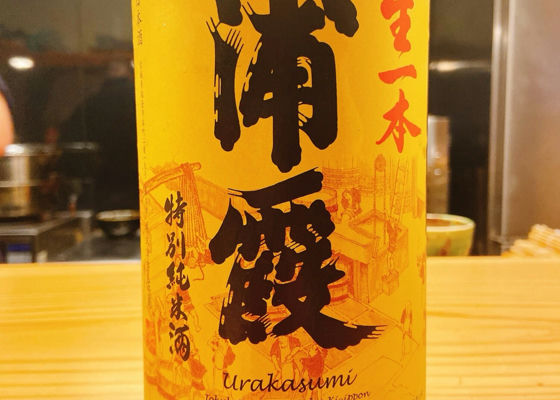 生一本
浦霞
特別純米酒
Urakasumi
Kiippon